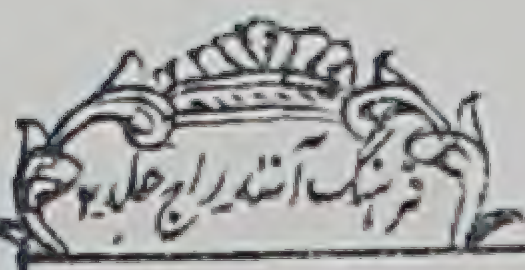 فرہنگ آنندراج جلد دوم